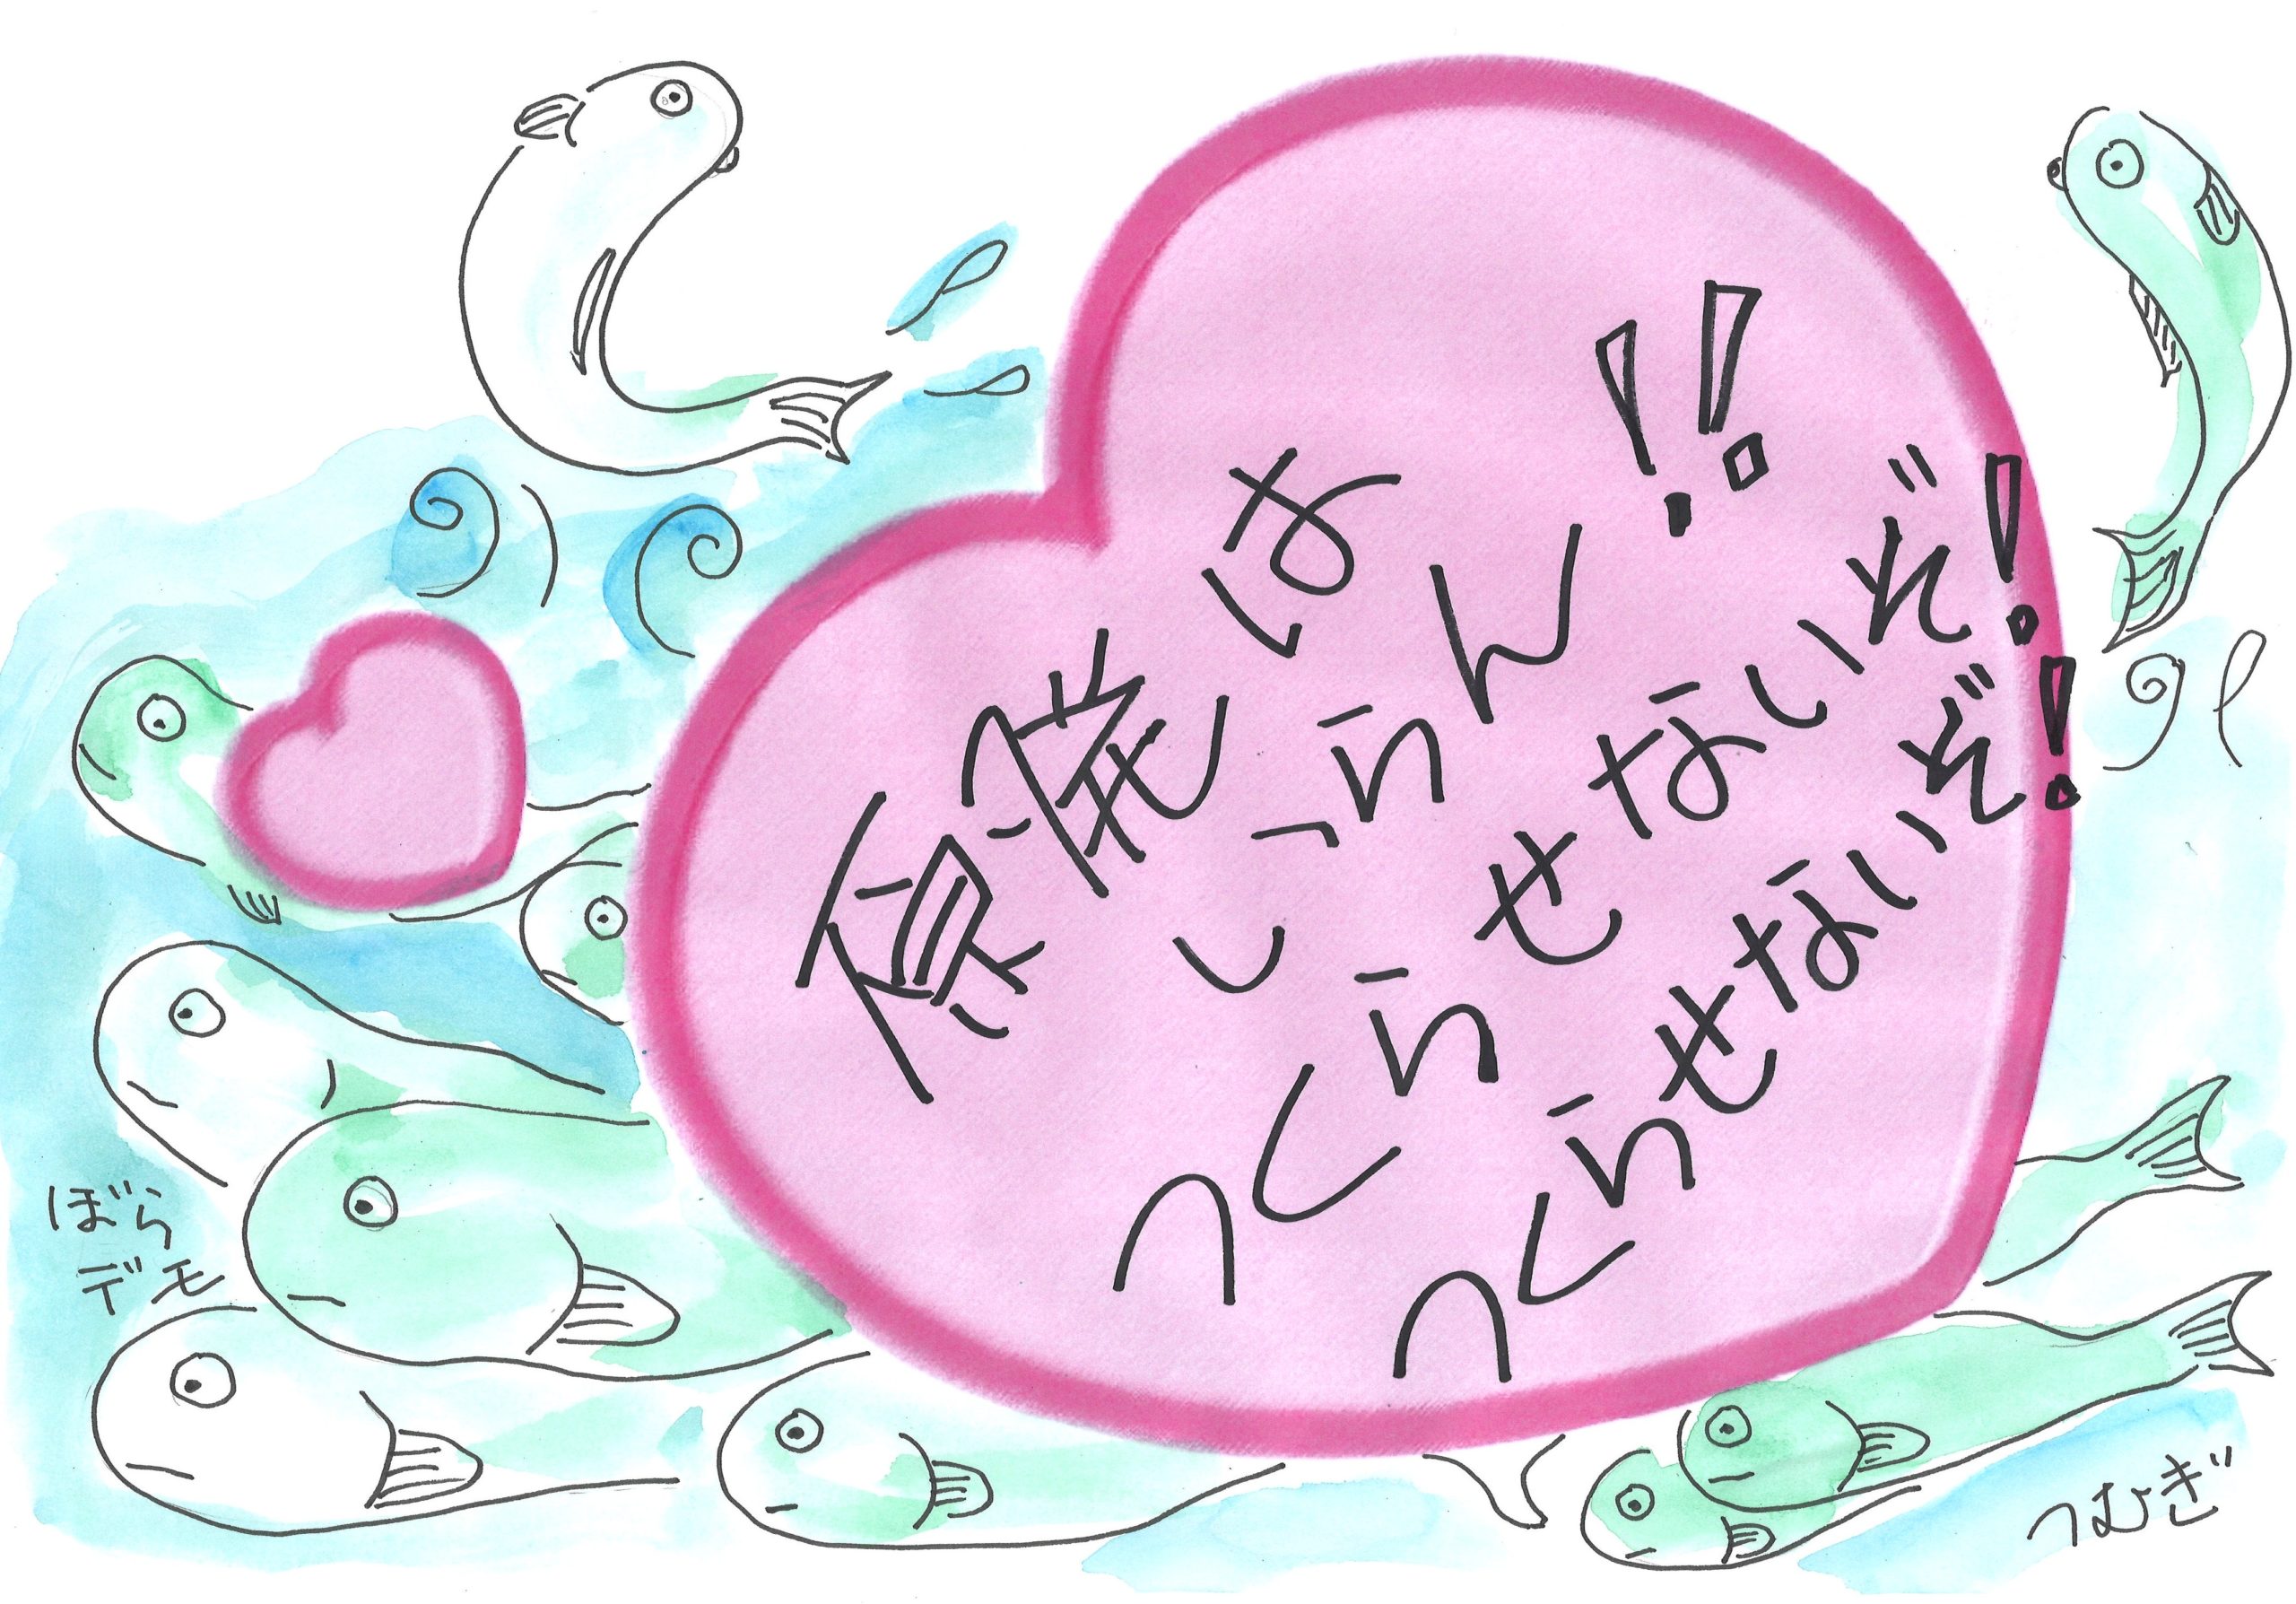 原発は
いらん!!
つくらせないぞ!
つくらせないぞ!
ぼら
デモ
つむぎ